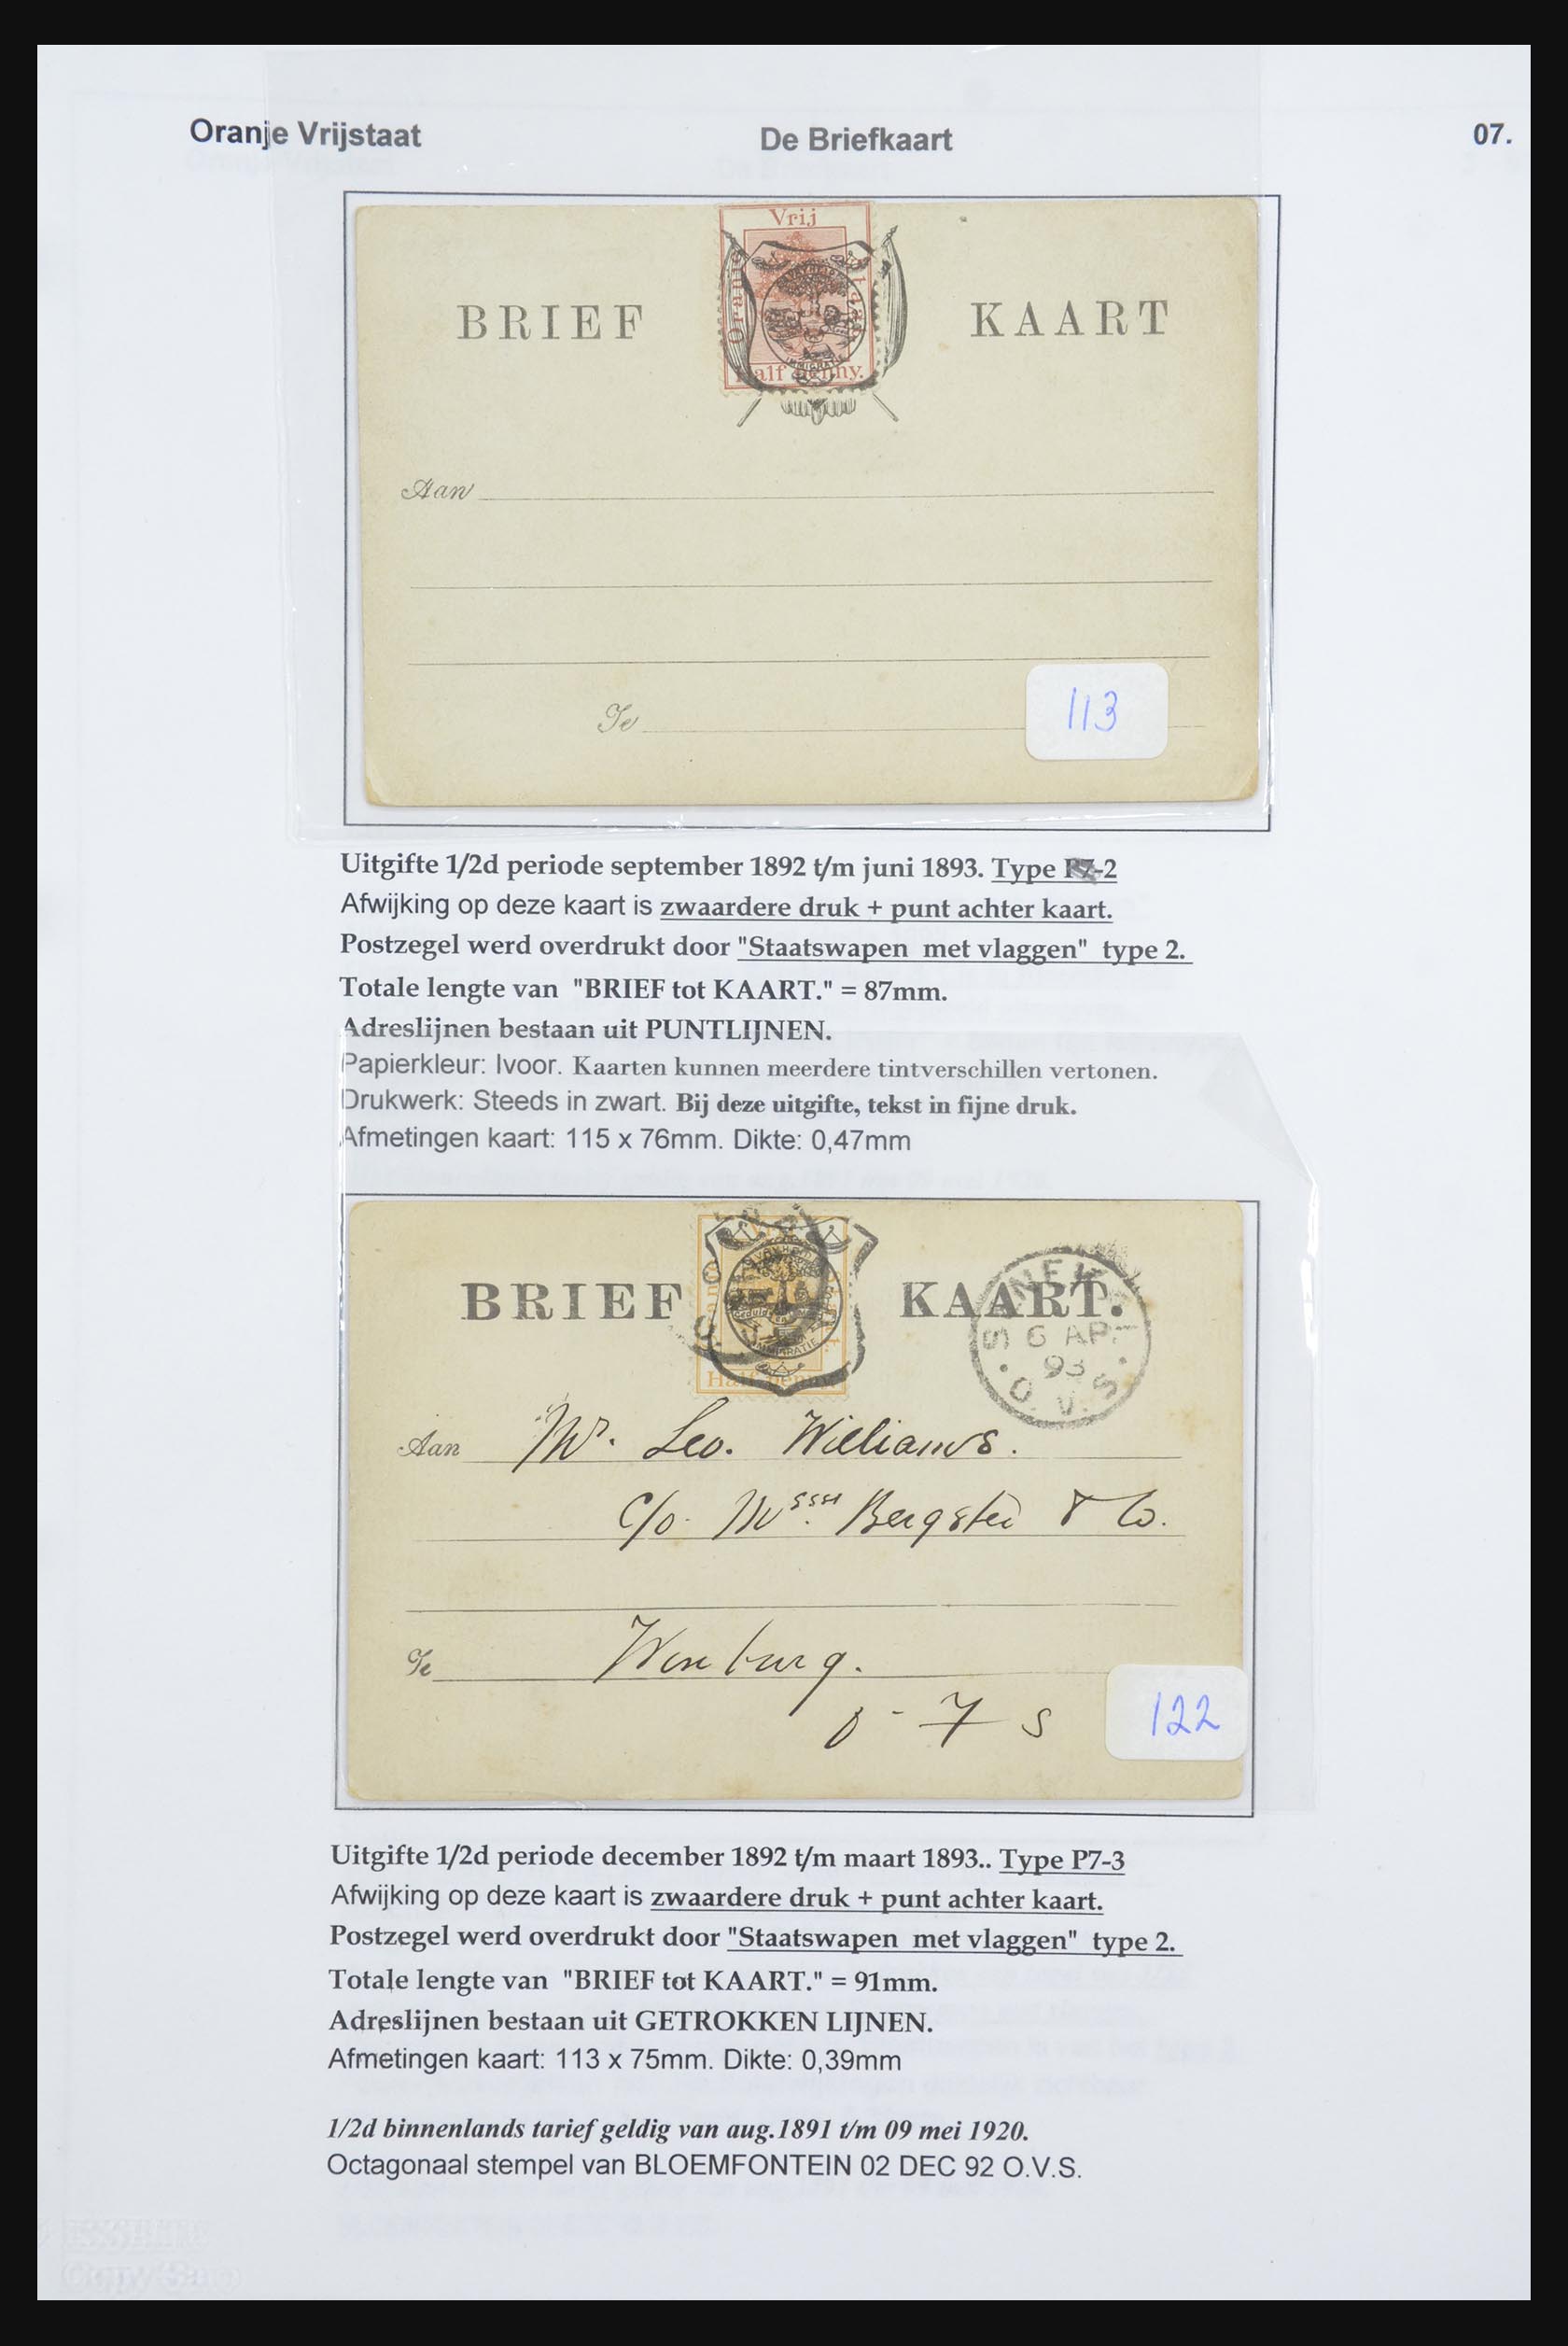 Oranje Vrijstaat De Briefkaart 07.
Vrij
Oranje
BRIEF KAART
IMMIGRATIE
Half penny.
Aan
Te
113
Uitgifte 1/2d periode september 1892 t/m juni 1893. Type P7-2
Afwijking op deze kaart is zwaardere druk + punt achter kaart.
Postzegel werd overdrukt door "Staatswapen met vlaggen" type 2.
Totale lengte van "BRIEF tot KAART." = 87mm.
Adreslijnen bestaan uit PUNTLIJNEN.
Papierkleur: Ivoor. Kaarten kunnen meerdere tintverschillen vertonen.
Drukwerk: Steeds in zwart. Bij deze uitgifte, tekst in fijne druk.
Afmetingen kaart: 115 x 76mm. Dikte: 0,47mm
BRIEF KAART.
6 AP
93
O.V.S.
IMMIGRATIE
Half penny.
Aan Mr. Leo. Williams.
c/o. Messrs Bergstei & Co.
Te Winburg.
122
Uitgifte 1/2d periode december 1892 t/m maart 1893.. Type P7-3
Afwijking op deze kaart is zwaardere druk + punt achter kaart.
Postzegel werd overdrukt door "Staatswapen met vlaggen" type 2.
Totale lengte van "BRIEF tot KAART." = 91mm.
Adreslijnen bestaan uit GETROKKEN LIJNEN.
Afmetingen kaart: 113 x 75mm. Dikte: 0,39mm
1/2d binnenlands tarief geldig van aug.1891 t/m 09 mei 1920.
Octagonaal stempel van BLOEMFONTEIN 02 DEC 92 O.V.S.